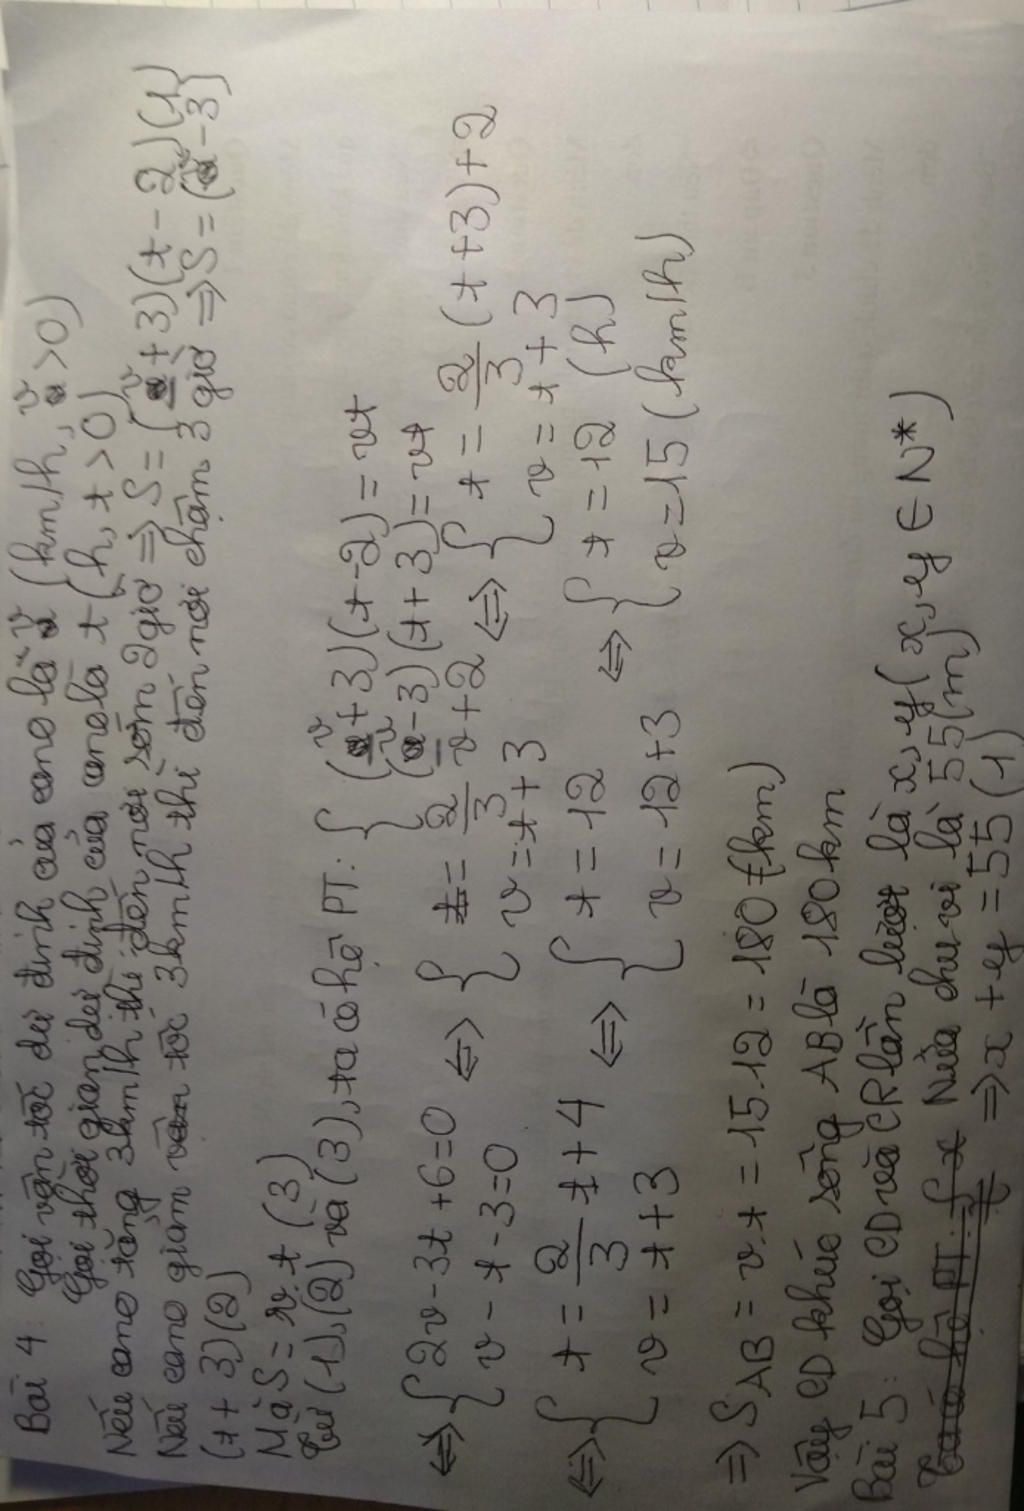 Bài 4: Gọi vận tốc dự định của cano là v (km/h, v > 0)
Gọi thời gian dự định của cano là t (h, t > 0)
Nếu cano tăng 3km/h thì đến nơi sớm 2 giờ => S = (v + 3)(t - 2) (1)
Nếu cano giảm vân tốc 3km/h thì đến nơi chậm 3 giờ => S = (v - 3)
(t + 3) (2)
Mà S = v.t (3)
Từ (1), (2) và (3), ta có hệ PT: { (v + 3)(t - 2) = vt
(v - 3)(t + 3) = vt
<=> { 2v - 3t + 6 = 0 <=> { t = 2/3 v + 2 <=> { t = 2/3 (t + 3) + 2
v - t - 3 = 0 v = t + 3 v = t + 3
<=> { t = 2/3 t + 4 <=> { t = 12 <=> { t = 12 (h)
v = t + 3 v = 12 + 3 v = 15 (km/h)
=> S AB = v.t = 15.12 = 180 (km)
Vậy CD khúc sông AB là 180 km
Bài 5: Gọi CD và CR lần lượt là x, y (x, y ∈ N*)
Nửa chu vi là 55 (m)
=> x + y = 55 (1)